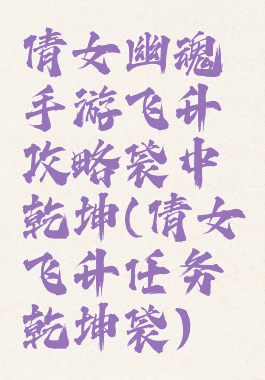 倩女幽魂
手游飞升
攻略袋中
乾坤(倩女
飞升任务
乾坤袋)